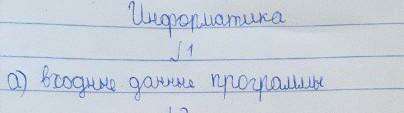 Информатика
√1
а) входные данные программы